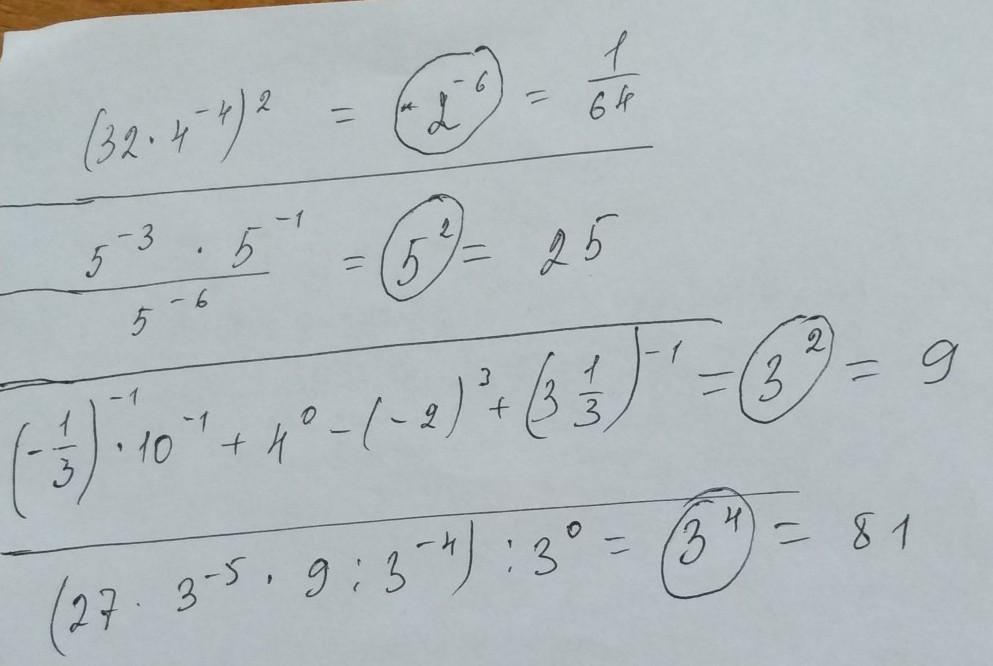 (32 · 4⁻⁴)² = 2⁻⁶ = 1/64
5⁻³ · 5⁻¹ / 5⁻⁶ = 5² = 25
(-1/3)⁻¹ · 10⁻¹ + 4⁰ - (-2)³ + (3 1/3)⁻¹ = 3² = 9
(27 · 3⁻⁵ · 9 : 3⁻⁴) : 3⁰ = 3⁴ = 81